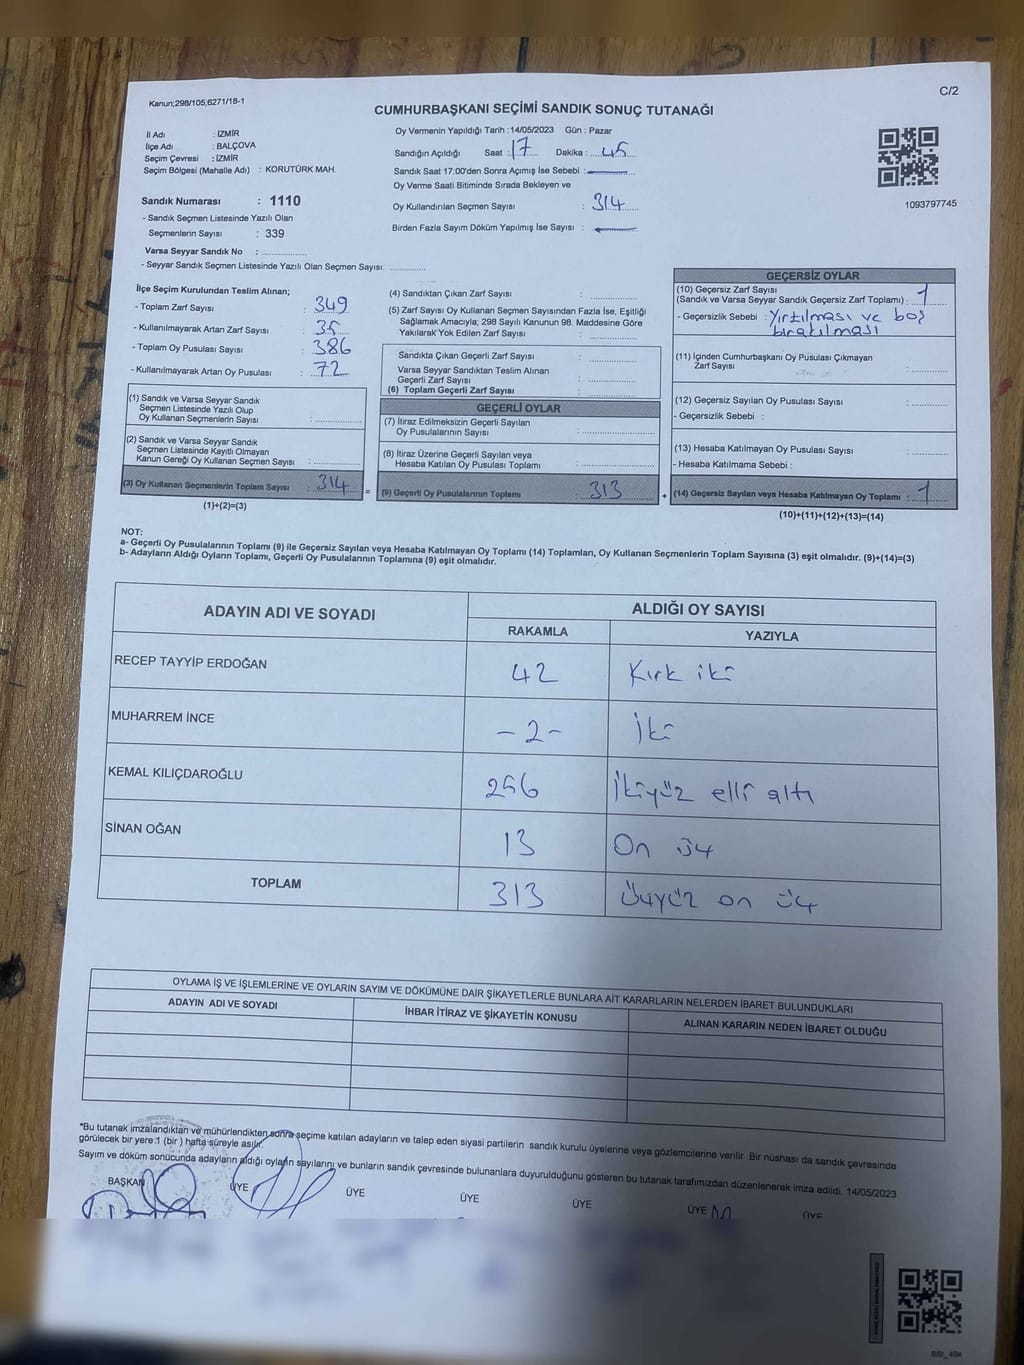 Kanun;298/105;6271/18-1
C/2
CUMHURBAŞKANI SEÇİMİ SANDIK SONUÇ TUTANAĞI
İl Adı : İZMİR
İlçe Adı : BALÇOVA
Seçim Çevresi : İZMİR
Seçim Bölgesi (Mahalle Adı) : KORUTÜRK MAH.
Oy Vermenin Yapıldığı Tarih :14/05/2023 Gün : Pazar
Sandığın Açıldığı Saat : 17 Dakika : 45
Sandık Saat 17:00'den Sonra Açımış İse Sebebi :
Oy Verme Saati Bitiminde Sırada Bekleyen ve
Oy Kullandırılan Seçmen Sayısı : 314
Birden Fazla Sayım Döküm Yapılmış İse Sayısı :
1093797745
Sandık Numarası : 1110
- Sandık Seçmen Listesinde Yazılı Olan
Seçmenlerin Sayısı : 339
Varsa Seyyar Sandık No :
- Seyyar Sandık Seçmen Listesinde Yazılı Olan Seçmen Sayısı:
İlçe Seçim Kurulundan Teslim Alınan;
- Toplam Zarf Sayısı : 349
- Kullanılmayarak Artan Zarf Sayısı : 35
- Toplam Oy Pusulası Sayısı : 386
- Kullanılmayarak Artan Oy Pusulası : 72
(1) Sandık ve Varsa Seyyar Sandık
Seçmen Listesinde Yazılı Olup
Oy Kullanan Seçmenlerin Sayısı :
(2) Sandık ve Varsa Seyyar Sandık
Seçmen Listesinde Kayıtlı Olmayan
Kanun Gereği Oy Kullanan Seçmen Sayısı :
(3) Oy Kullanan Seçmenlerin Toplam Sayısı : 314
(1)+(2)=(3)
(4) Sandıktan Çıkan Zarf Sayısı :
(5) Zarf Sayısı Oy Kullanan Seçmen Sayısından Fazla İse, Eşitliği
Sağlamak Amacıyla; 298 Sayılı Kanunun 98. Maddesine Göre
Yakılarak Yok Edilen Zarf Sayısı :
Sandıkta Çıkan Geçerli Zarf Sayısı :
Varsa Seyyar Sandıktan Teslim Alınan
Geçerli Zarf Sayısı :
(6) Toplam Geçerli Zarf Sayısı :
GEÇERLİ OYLAR
(7) İtiraz Edilmeksizin Geçerli Sayılan
Oy Pusulalarının Sayısı :
(8) İtiraz Üzerine Geçerli Sayılan veya
Hesaba Katılan Oy Pusulası Toplamı :
= (9) Geçerli Oy Pusulalarının Toplamı : 313
GEÇERSİZ OYLAR
(10) Geçersiz Zarf Sayısı
(Sandık ve Varsa Seyyar Sandık Geçersiz Zarf Toplamı) : 1
- Geçersizlik Sebebi : Yırtılması ve boş
bırakılması
(11) İçinden Cumhurbaşkanı Oy Pusulası Çıkmayan
Zarf Sayısı :
(12) Geçersiz Sayılan Oy Pusulası Sayısı :
- Geçersizlik Sebebi :
(13) Hesaba Katılmayan Oy Pusulası Sayısı :
- Hesaba Katılmama Sebebi :
+ (14) Geçersiz Sayılan veya Hesaba Katılmayan Oy Toplamı : 1
(10)+(11)+(12)+(13)=(14)
NOT:
a- Geçerli Oy Pusulalarının Toplamı (9) ile Geçersiz Sayılan veya Hesaba Katılmayan Oy Toplamı (14) Toplamları, Oy Kullanan Seçmenlerin Toplam Sayısına (3) eşit olmalıdır. (9)+(14)=(3)
b- Adayların Aldığı Oyların Toplamı, Geçerli Oy Pusulalarının Toplamına (9) eşit olmalıdır.
ADAYIN ADI VE SOYADI ALDIĞI OY SAYISI
RAKAMLA YAZIYLA
RECEP TAYYİP ERDOĞAN 42 Kırk iki
MUHARREM İNCE -2- İki
KEMAL KILIÇDAROĞLU 256 İkiyüz elli altı
SİNAN OĞAN 13 On üç
TOPLAM 313 Üçyüz on üç
OYLAMA İŞ VE İŞLEMLERİNE VE OYLARIN SAYIM VE DÖKÜMÜNE DAİR ŞİKAYETLERLE BUNLARA AİT KARARLARIN NELERDEN İBARET BULUNDUKLARI
ADAYIN ADI VE SOYADI İHBAR İTİRAZ VE ŞİKAYETİN KONUSU ALINAN KARARIN NEDEN İBARET OLDUĞU
*Bu tutanak imzalandıktan ve mühürlendikten sonra seçime katılan adayların ve talep eden siyasi partilerin sandık kurulu üyelerine veya gözlemcilerine verilir. Bir nüshası da sandık çevresinde
görülecek bir yere 1 (bir) hafta süreyle asılır.
Sayım ve döküm sonucunda adayların aldığı oyların sayılarını ve bunların sandık çevresinde bulunanlara duyurulduğunu gösteren bu tutanak tarafımızdan düzenlenerek imza edildi. 14/05/2023
BAŞKAN ÜYE ÜYE ÜYE ÜYE ÜYE ÜYE